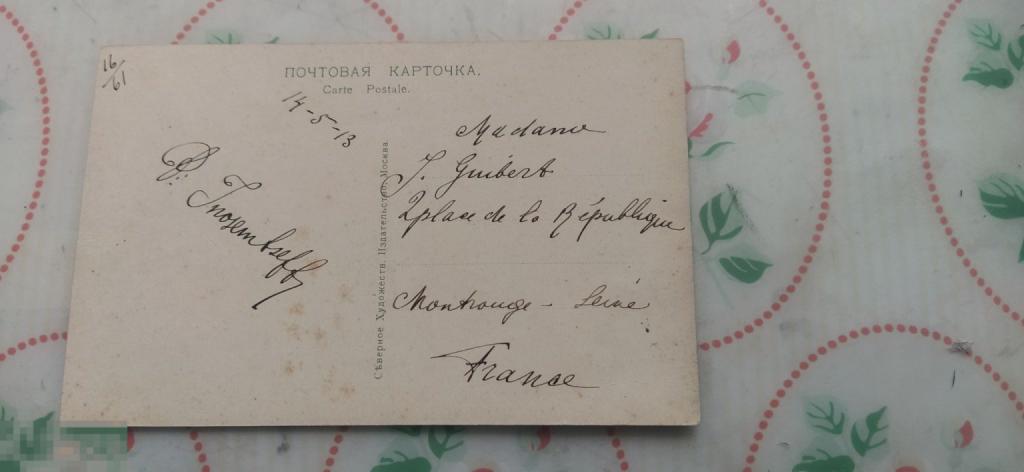 16/61
ПОЧТОВАЯ КАРТОЧКА.
Carte Postale.
14-5-13
Madame
J. Guibert
2 place de la République
Montrouge - Seine
France
Сѣверное Художеств. Издательство. Москва